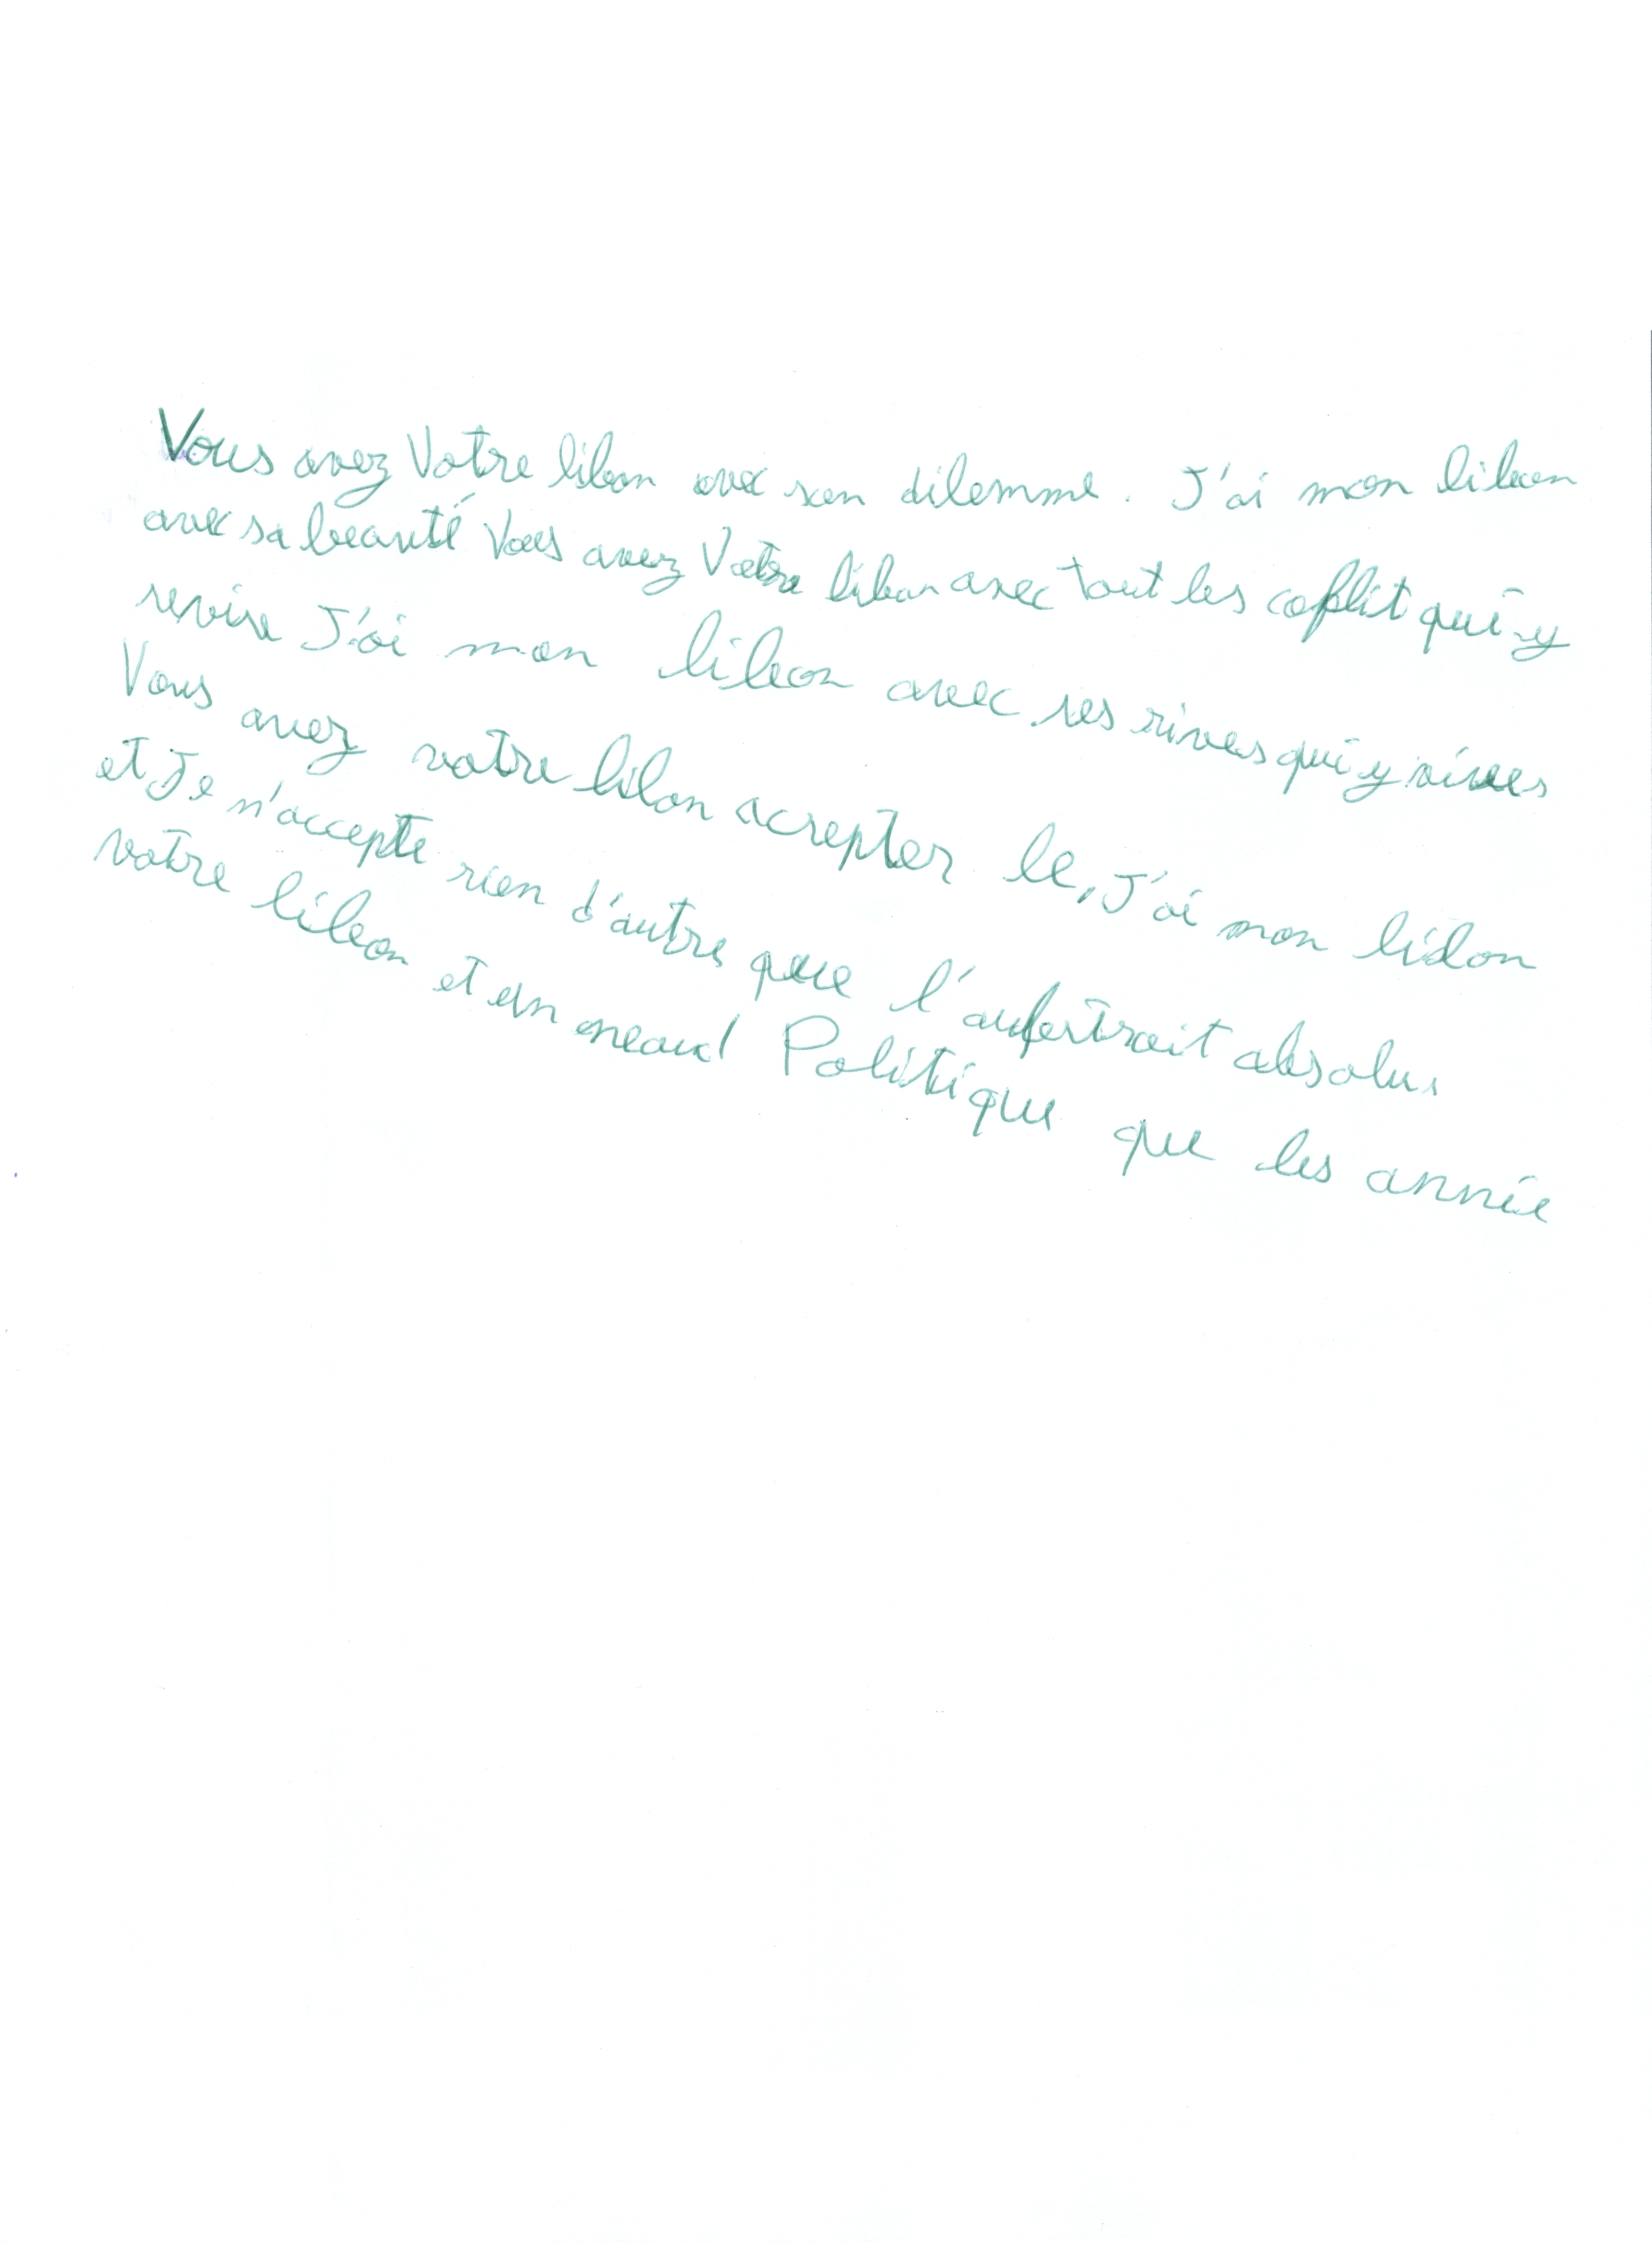 Vous avez Votre liban avec son dilemme. J'ai mon liban
avec sa beauté Vous avez Votre liban avec tout les coflit qui-y
J'ai mon liban avec ses rives qui y vives
Vous avez votre liban acrepter le, J'ai mon lidon
et Je n'accepte rien d'autre que l' absolu.
votre liban et un neaud Politique que les année